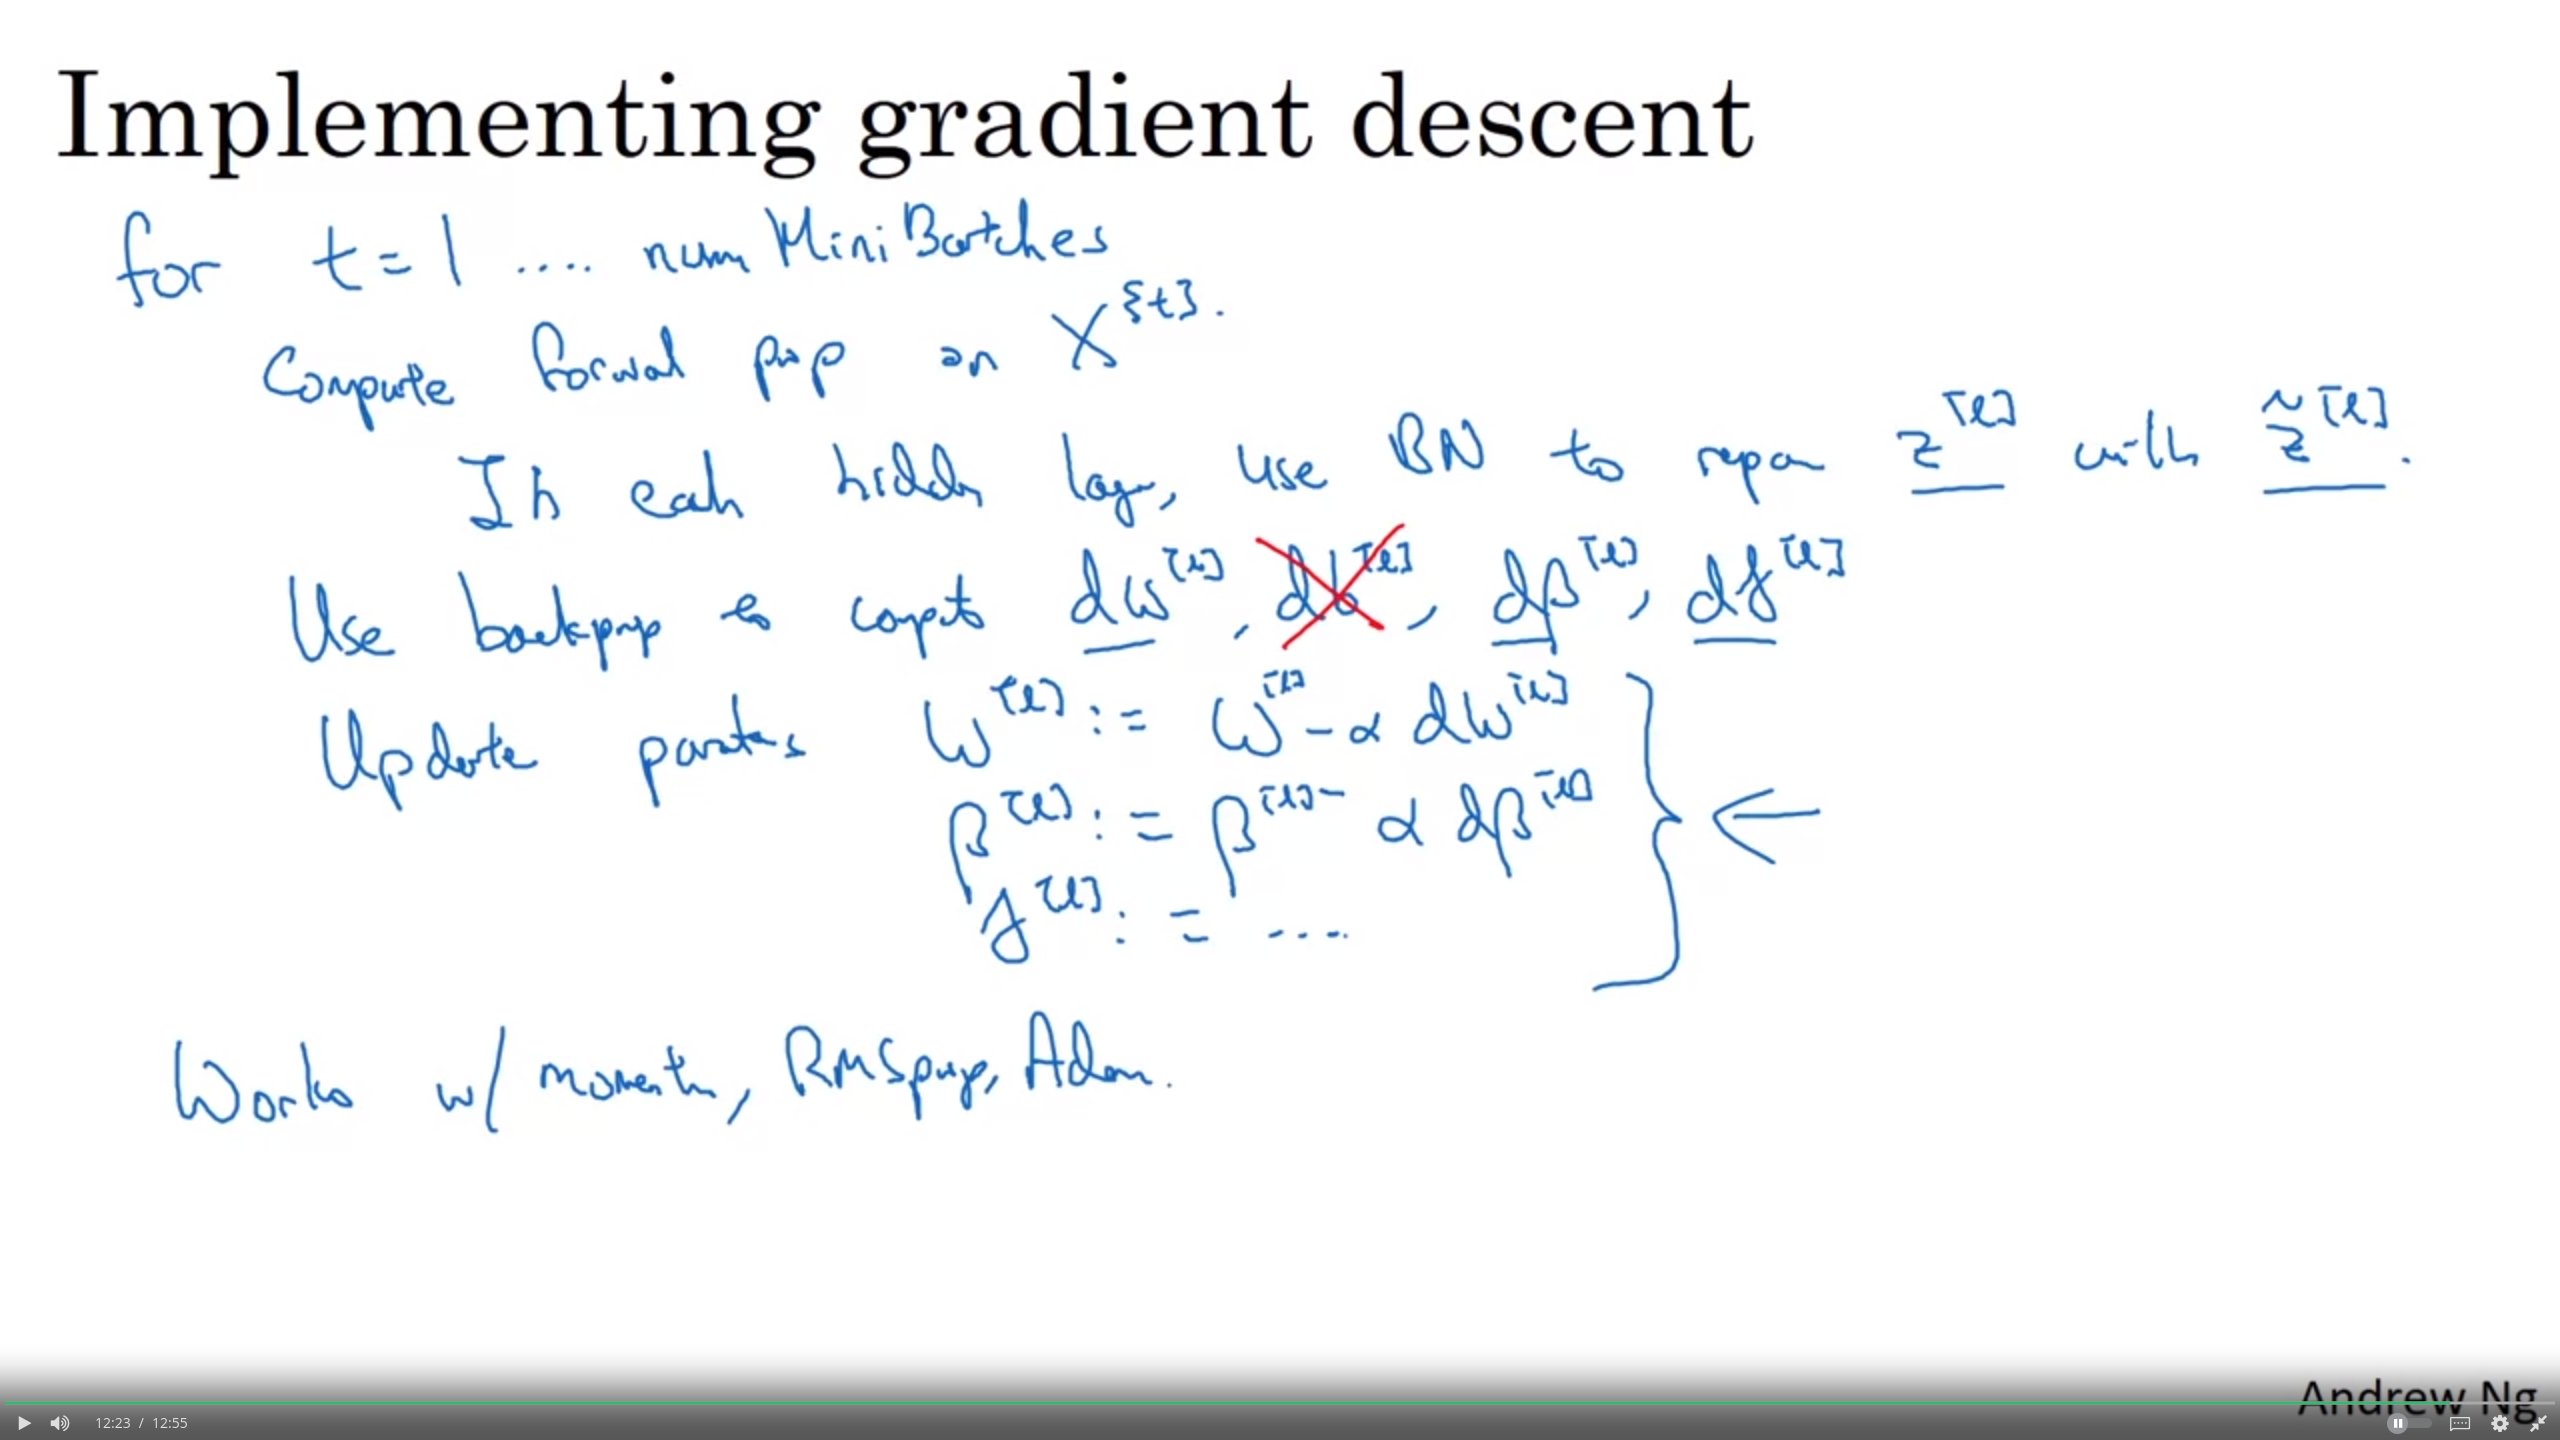 Implementing gradient descent
for t = 1 .... num Mini Batches
Compute forward prop on X^{t}.
In each hidden layer, use BN to replace z^[l] with z̃^[l].
Use backprop to compute dw^[l], db^[l], dβ^[l], dγ^[l]
Update parameters W^[l] := W^[l] - α dW^[l]
β^[l] := β^[l] - α dβ^[l]
γ^[l] := ....
Works w/ momentum, RMSprop, Adam.
Andrew Ng
12:23 / 12:55